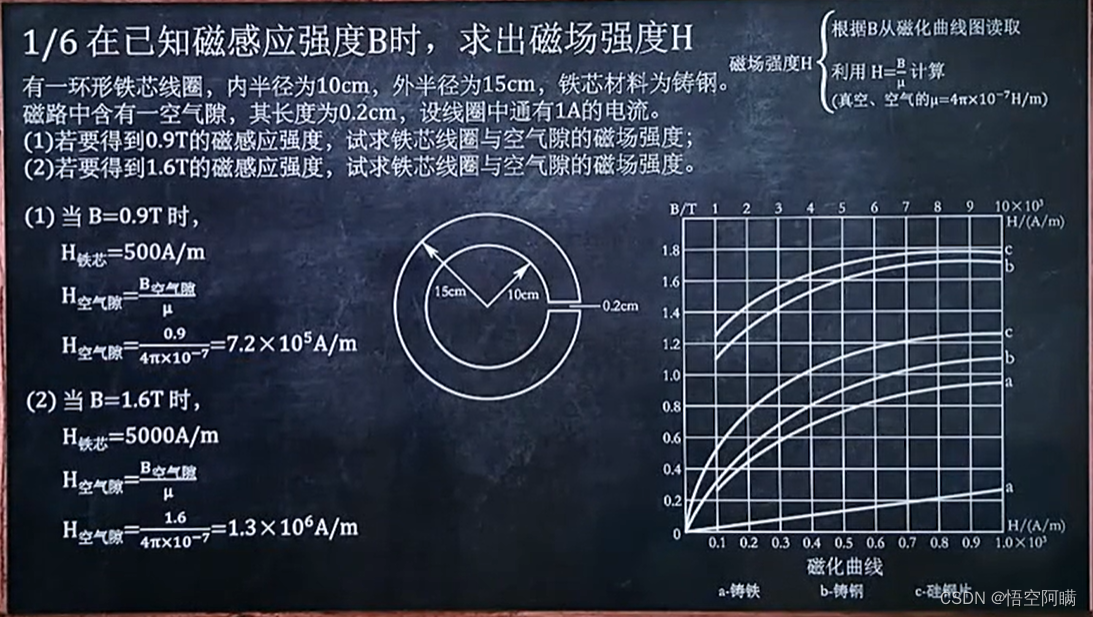 1/6 在已知磁感应强度B时，求出磁场强度H
磁场强度H
根据B从磁化曲线图读取
利用 H=B/μ 计算
(真空、空气的μ=4π×10⁻⁷H/m)
有一环形铁芯线圈，内半径为10cm，外半径为15cm，铁芯材料为铸钢。
磁路中含有一空气隙，其长度为0.2cm，设线圈中通有1A的电流。
(1)若要得到0.9T的磁感应强度，试求铁芯线圈与空气隙的磁场强度；
(2)若要得到1.6T的磁感应强度，试求铁芯线圈与空气隙的磁场强度。
(1) 当 B=0.9T 时，
H铁芯=500A/m
H空气隙=B空气隙/μ
H空气隙=0.9/4π×10⁻⁷=7.2×10⁵A/m
(2) 当 B=1.6T 时，
H铁芯=5000A/m
H空气隙=B空气隙/μ
H空气隙=1.6/4π×10⁻⁷=1.3×10⁶A/m
15cm
10cm
0.2cm
B/T 1 2 3 4 5 6 7 8 9 10×10³
H/(A/m)
1.8
c
b
1.6
1.4
1.2
c
1.0
b
a
0.8
0.6
0.4
a
0.2
0
H/(A/m)
0.1 0.2 0.3 0.4 0.5 0.6 0.7 0.8 0.9 1.0×10³
磁化曲线
a-铸铁 b-铸钢 c-硅钢片
CSDN @悟空阿瞒